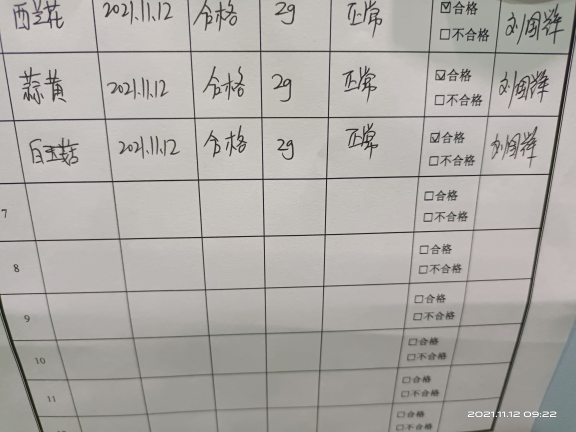 西兰花 2021.11.12 合格 2g 正常 ☑合格 刘国祥
□不合格
蒜黄 2021.11.12 合格 2g 正常 ☑合格 刘国祥
□不合格
白玉菇 2021.11.12 合格 2g 正常 ☑合格 刘国祥
□不合格
7 □合格
□不合格
8 □合格
□不合格
9 □合格
□不合格
10 □合格
□不合格
11 □合格
□不合格
□合格
□不合格
2021.11.12 09:22